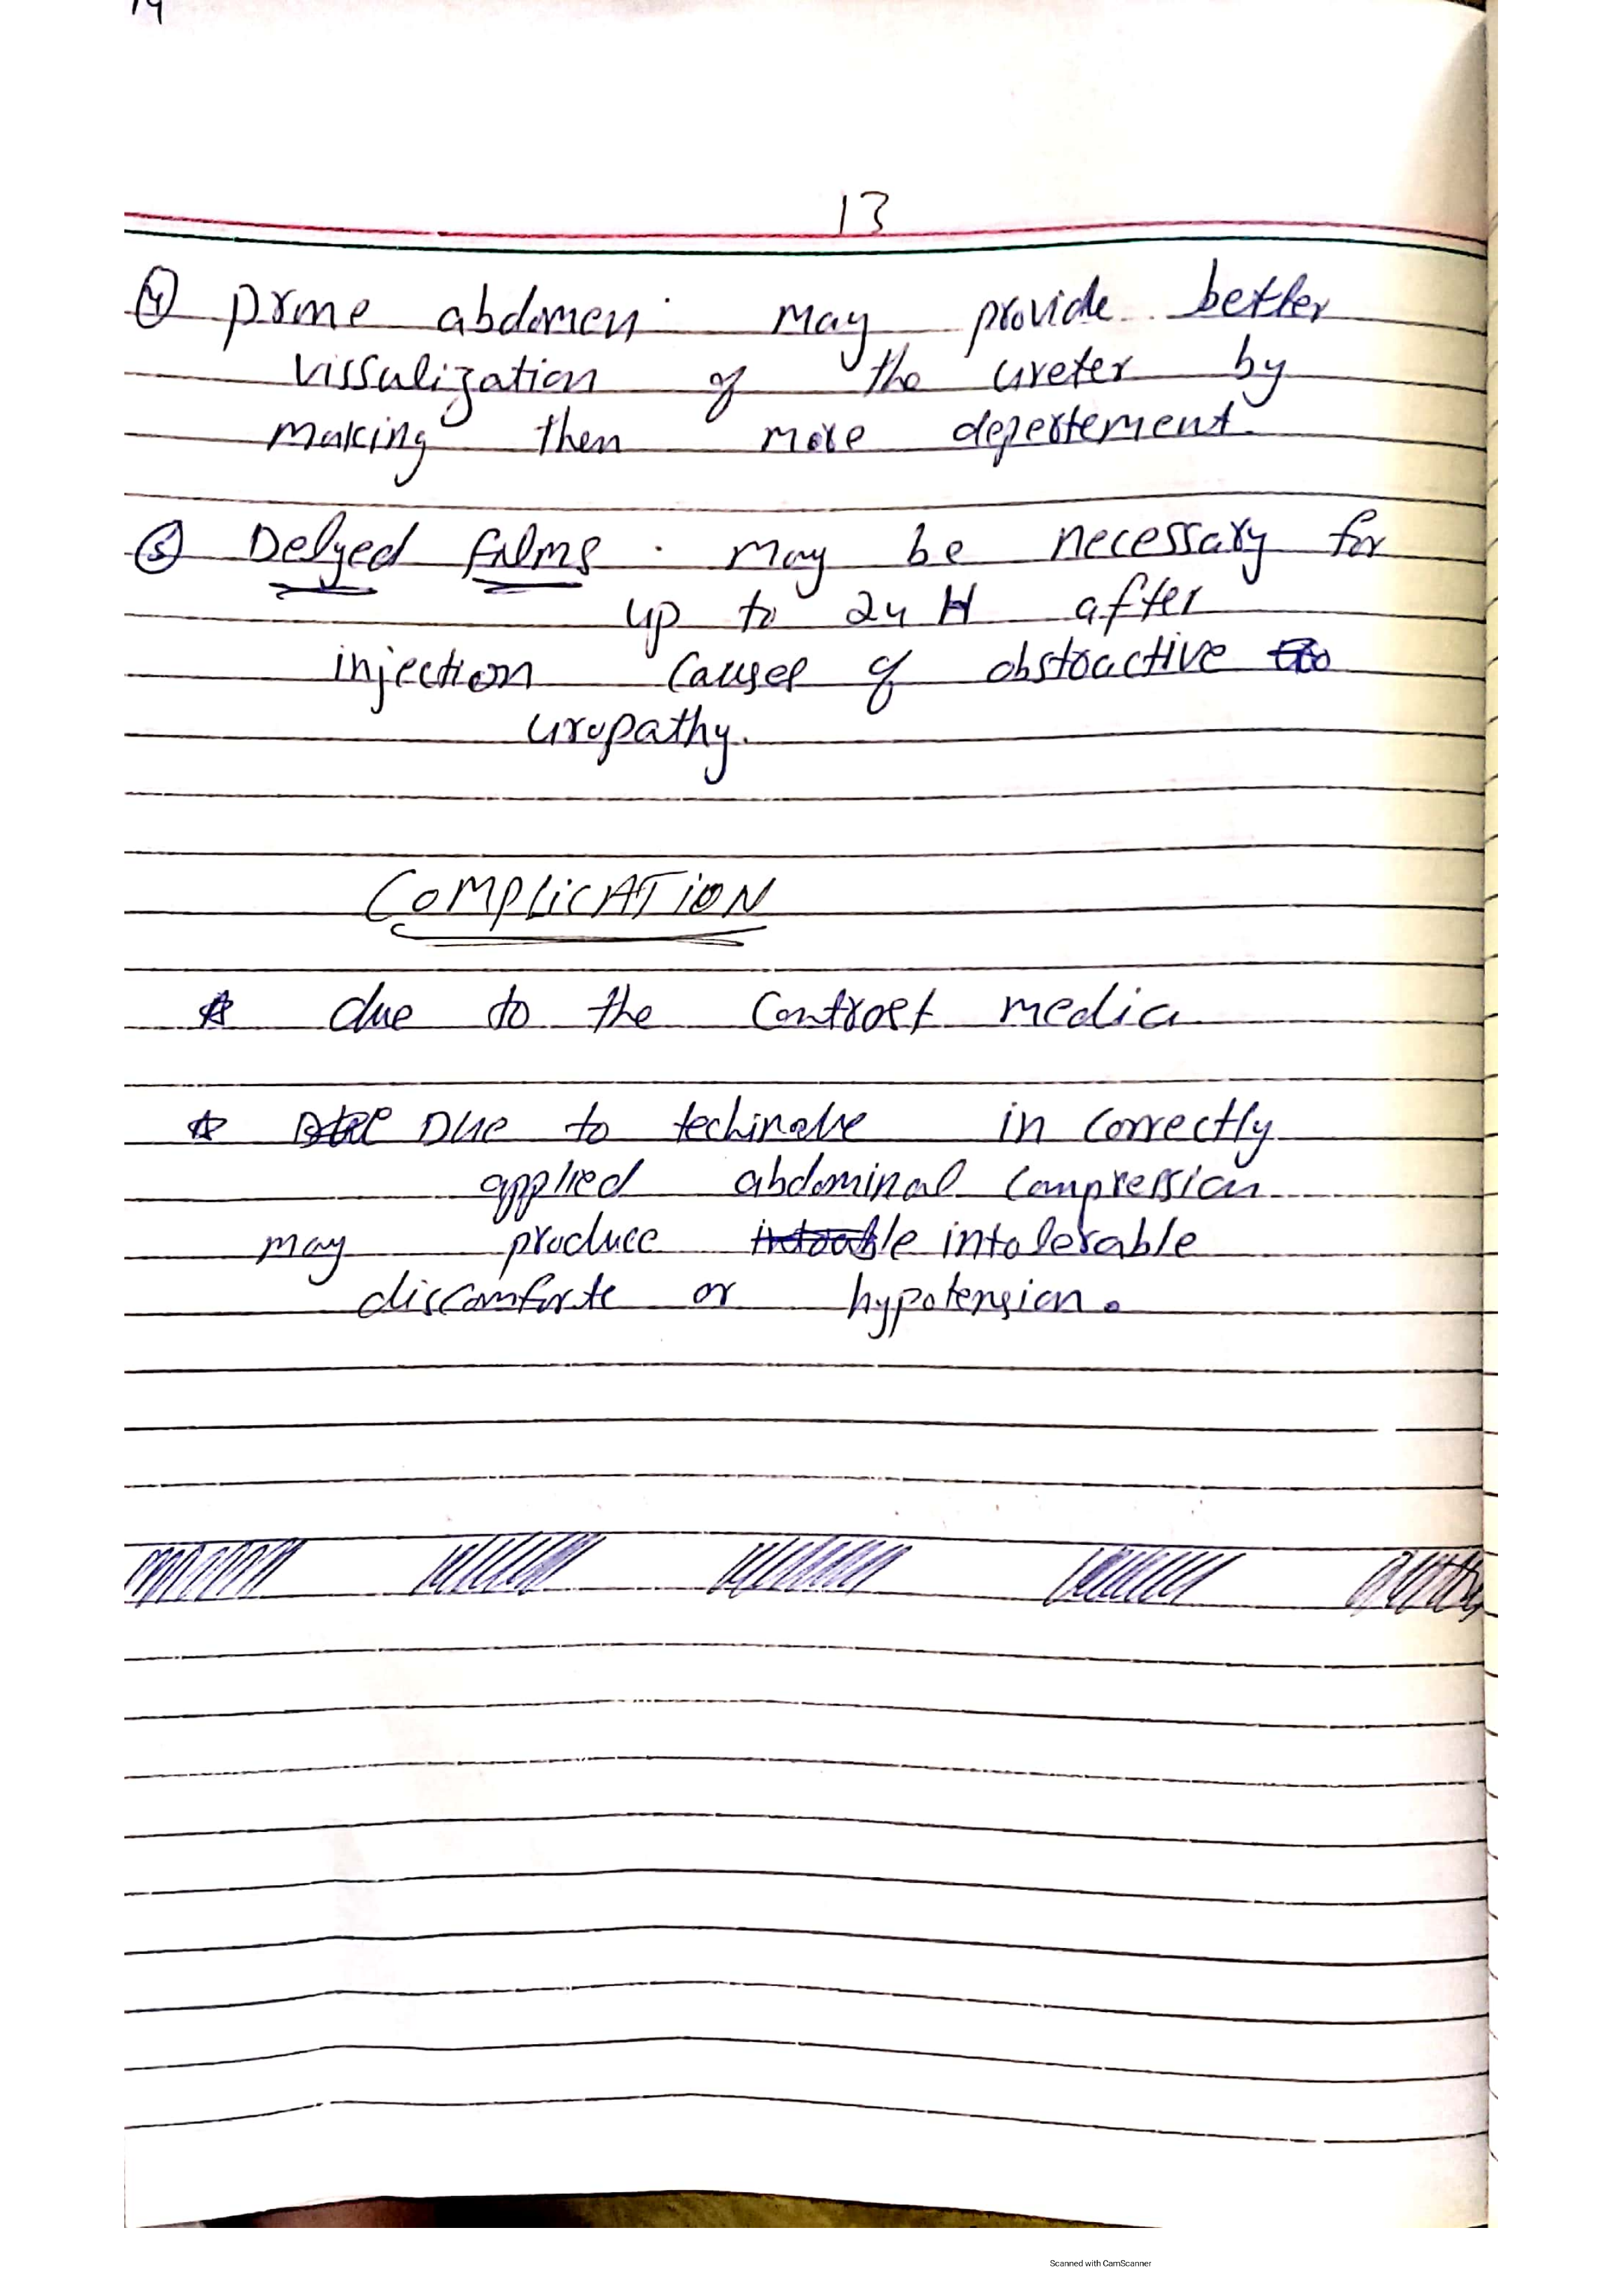 14
13
④ prone abdomen : may provide better
vissulization of the ureter by
making then more depertement.
⑤ Delyed films : may be necessary for
up to 24 H after
injection causes of obstractive
uropathy.
COMPLICATION
☆ due to the Contrast media
☆ Due to techinqlue in correctly
applied abdominal Compression
may produce intolerable
discomforte or hypotension.
Scanned with CamScanner